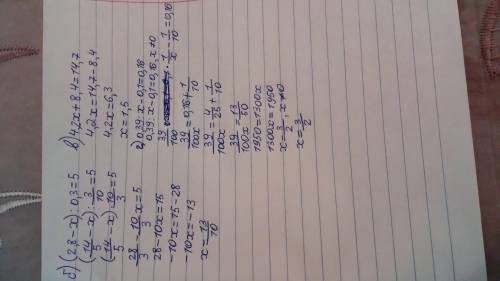 б) (2,8-x):0,3=5
(14/5-x):3/10=5
(14/5-x)·10/3=5
28/3-10/3x=5
28-10x=15
-10x=15-28
-10x=-13
x=13/10
в) 4,2x+8,4=14,7
4,2x=14,7-8,4
4,2x=6,3
x=1,5
г) 0,39:x-0,1=0,16
0,39:x-0,1=0,16, x≠0
39/100·1/x-1/10=0,16
39/100x=0,16+1/10
39/100x=4/25+1/10
39/100x=13/50
1950=1300x
1300x=1950
x=3/2, x≠0
x=3/2